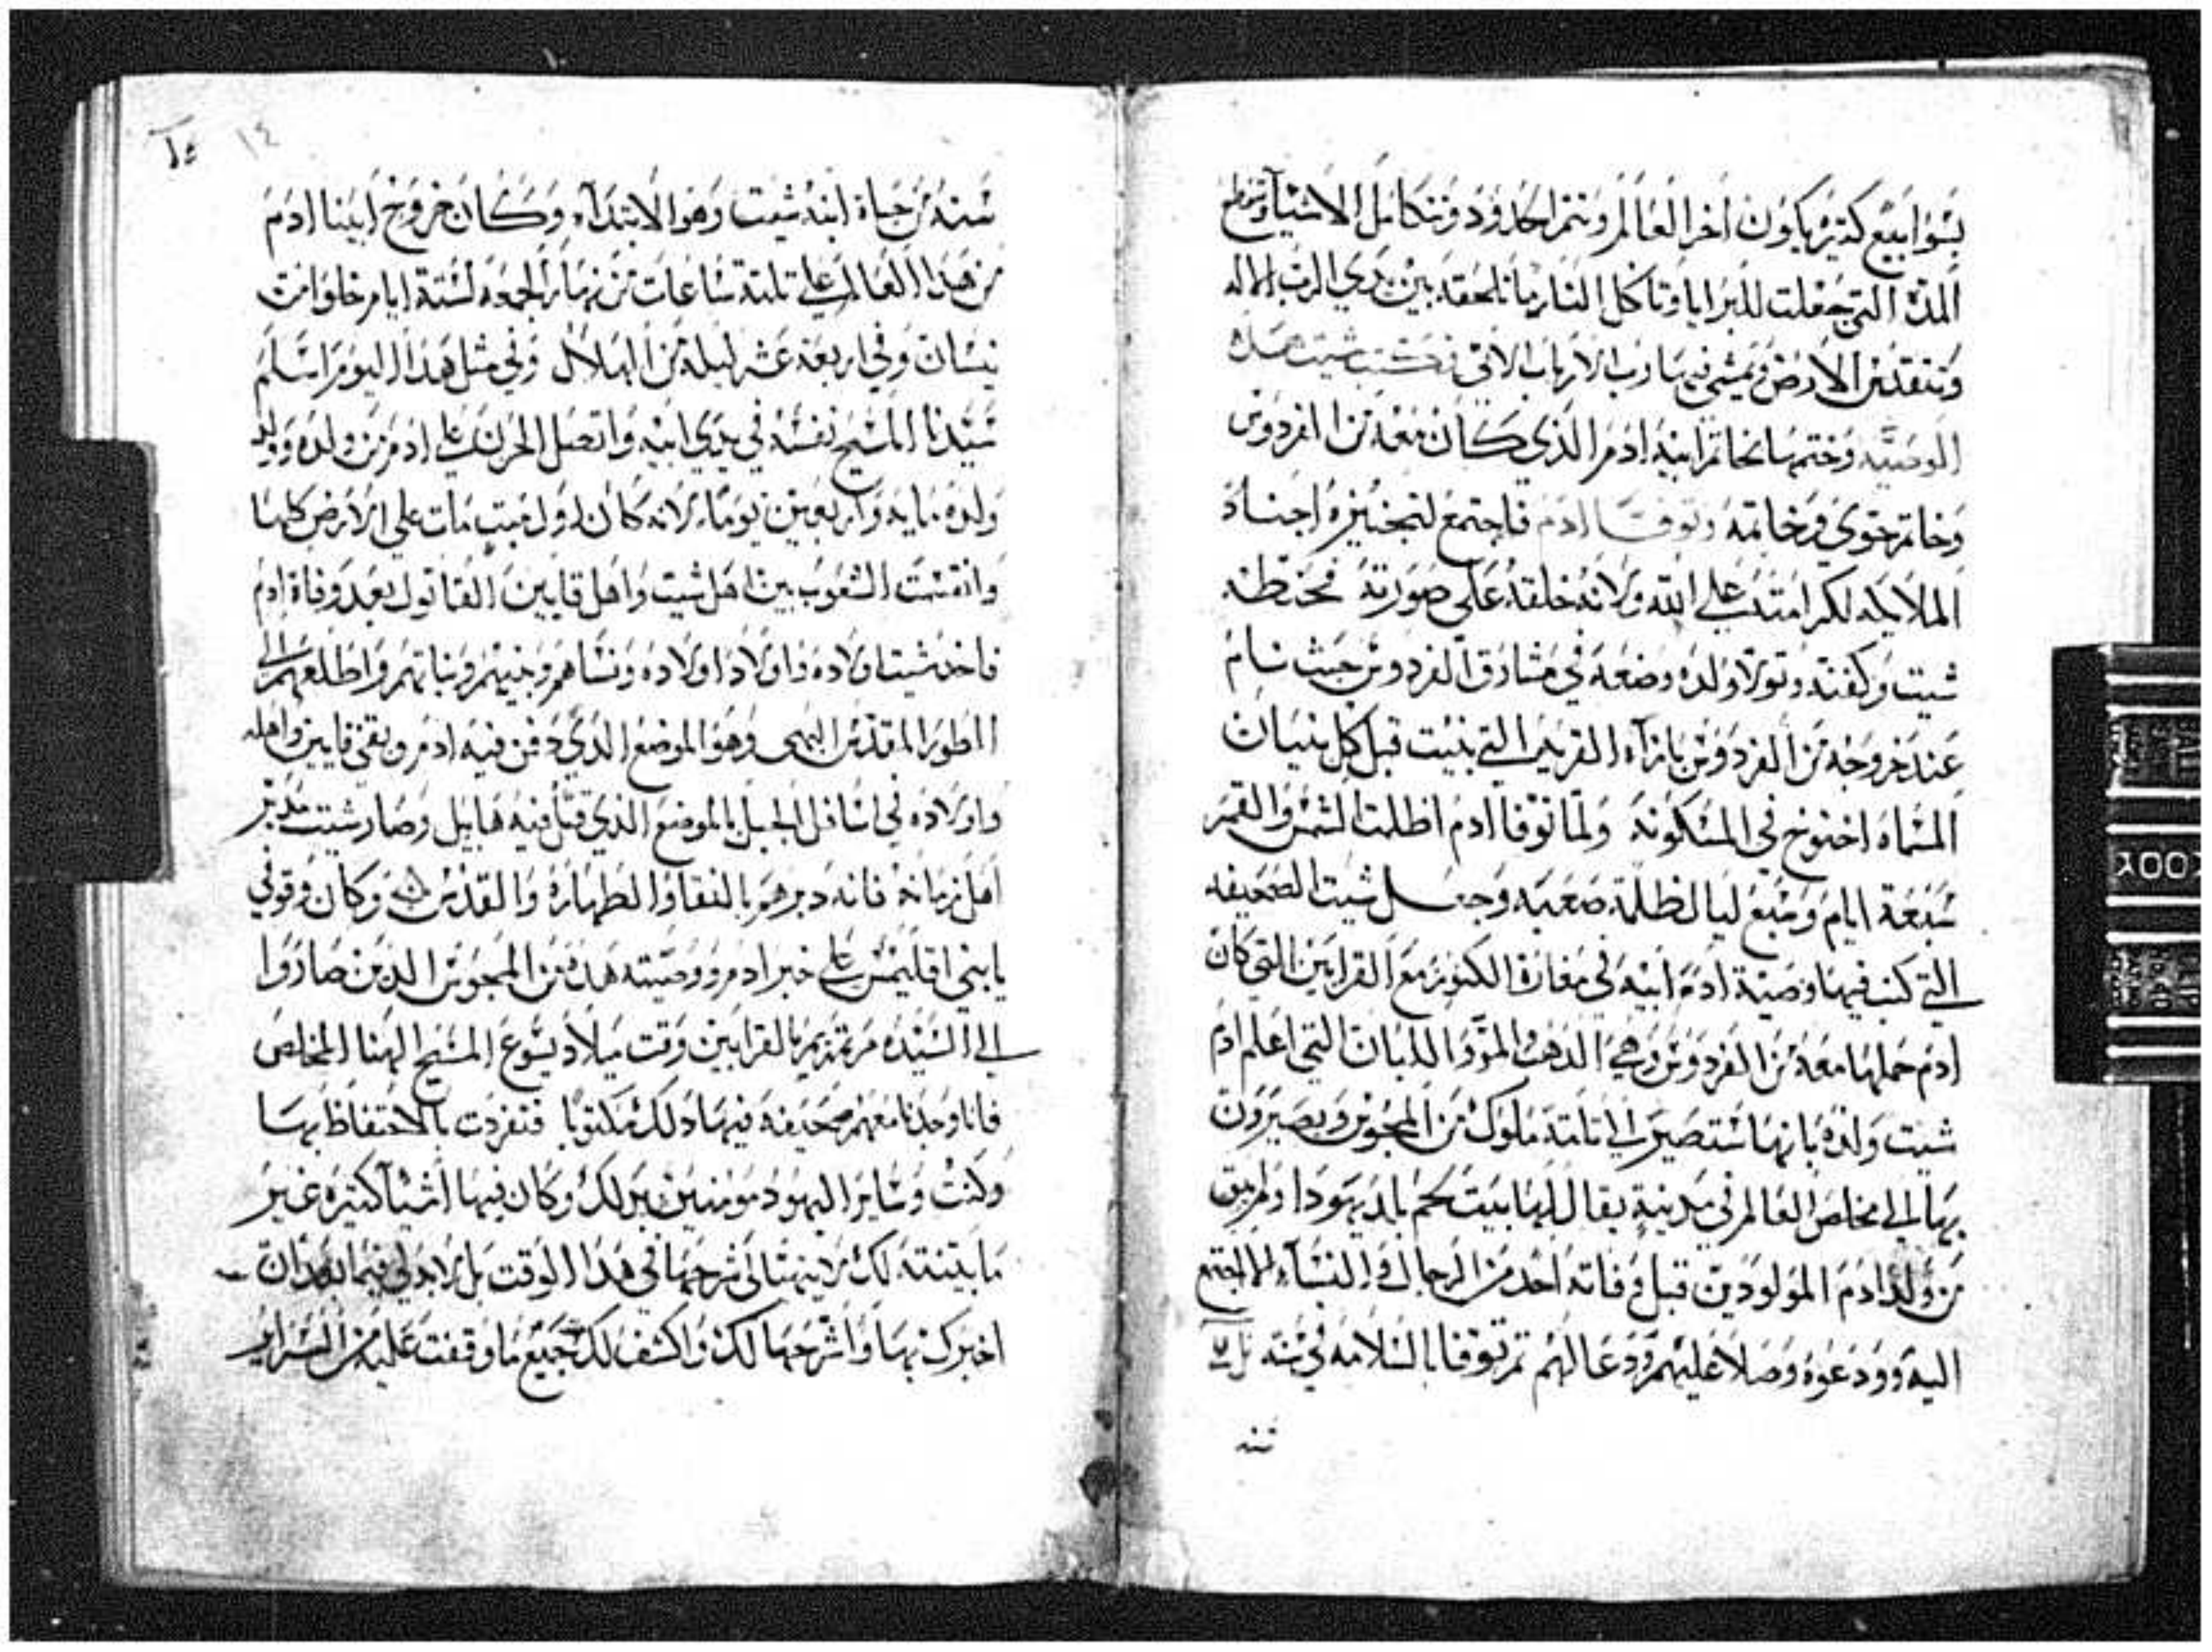 بسوابيع كتيره يكون اخر العالم وتتم الحدود وتتكامل الاشيآ
المدة التي جعلت للبرايا وتاكل النار ما تلحقه بين يدي الرب الاله
وتتقدس الارض ويمشي فيها رب الارباب الاتي فكتب شيت هذه
الوصيه وختمها بخاتم ابيه ادم الذي كان معه من الفردوس
وخاتم حوي وخاتمه وتوفا ادم فاجتمع لتجنيزه اجناد
الملايكه لكرامته علي الله ولانه خلقه علي صورته فحنطه
شيت وكفنه وتولا ولده وضعه في مشارق الفردوس حيث نام
عند خروجه من الفردوس بازآء القريه التي بنيت قبل كل بنيان
المسماه اخنوخ في المسكونه ولما توفا ادم اظلمت الشمس والقمر
سبعة ايام وسبع ليال ظلمة صعبه وجعل شيت الصحيفه
التي كتب فيها وصية ادم ابيه في مغارة الكنوز مع القرابين التي كان
ادم حملها معه من الفردوس وهي الدهب والمر واللبان التي اعلم ادم
شيت ولده بانها ستصير الي تلتة ملوك من المجوس ويصيرون
بها الي مخلص العالم في مدينة يقال لها بيت لحم بلد يهودا ولم يبق
من ولد ادم المولودين قبل وفاته احد من الرجال والنسآء الا اجتمع
اليه وودعوه وصلا عليهم ودعا لهم تم توفا بالسلامه في سنة
سنه
١٤
سنه من حياة ابنه شيت وهو الابتدآء وكان خروج ابينا ادم
من هدا العالم علي تلتة ساعات من نهار الجمعه لستة ايام خلوا من
نيسان وفي اربعة عشر ليلة من الهلال وفي مثل هدا اليوم اسلم
سيدنا المسيح نفسه في يدي ابيه واتصل الحزن علي ادم من ولده وولد
ولده مايه واربعين يوما لانه كان اول ميت مات علي الارض كلها
وانقسمت الشعوب بين اهل شيت واهل قايين القاتول بعد وفاة ادم
فاخد شيت اولاده واولاد اولاده ونساهم وبنيهم وبناتهم واطلعهم الي
الطور المقدس البهي وهو الموضع الذي دفن فيه ادم وبقي قايين واهله
واولاده في اسافل الجبل بالموضع الذي قتل فيه هابيل وصار شيت مدبر
اهل زمانه فانه دبرهم بالنقاوا الطهاره والقدس وكان وقوفي
يا بني اقليمس علي خبر ادم ووصيته هده من المجوس الدين صاروا
الي السيده مرتمريم بالقرابين وقت ميلاد يسوع المسيح الهنا المخلص
فانا وجدنا معهم صحيفه فيها دلك مكتوبا فتفردت بالاحتفاظ بها
وكنت وساير اليهود مومنين بدلك وكان فيها اشيآ كتيره غير
ما بينته لك لا يتهيا لي شرحها في هدا الوقت بل لابد لي فيما بعد ان
اخبرك بها واشرحها لك واكشف لك جميع ما وقفت عليه من السراير